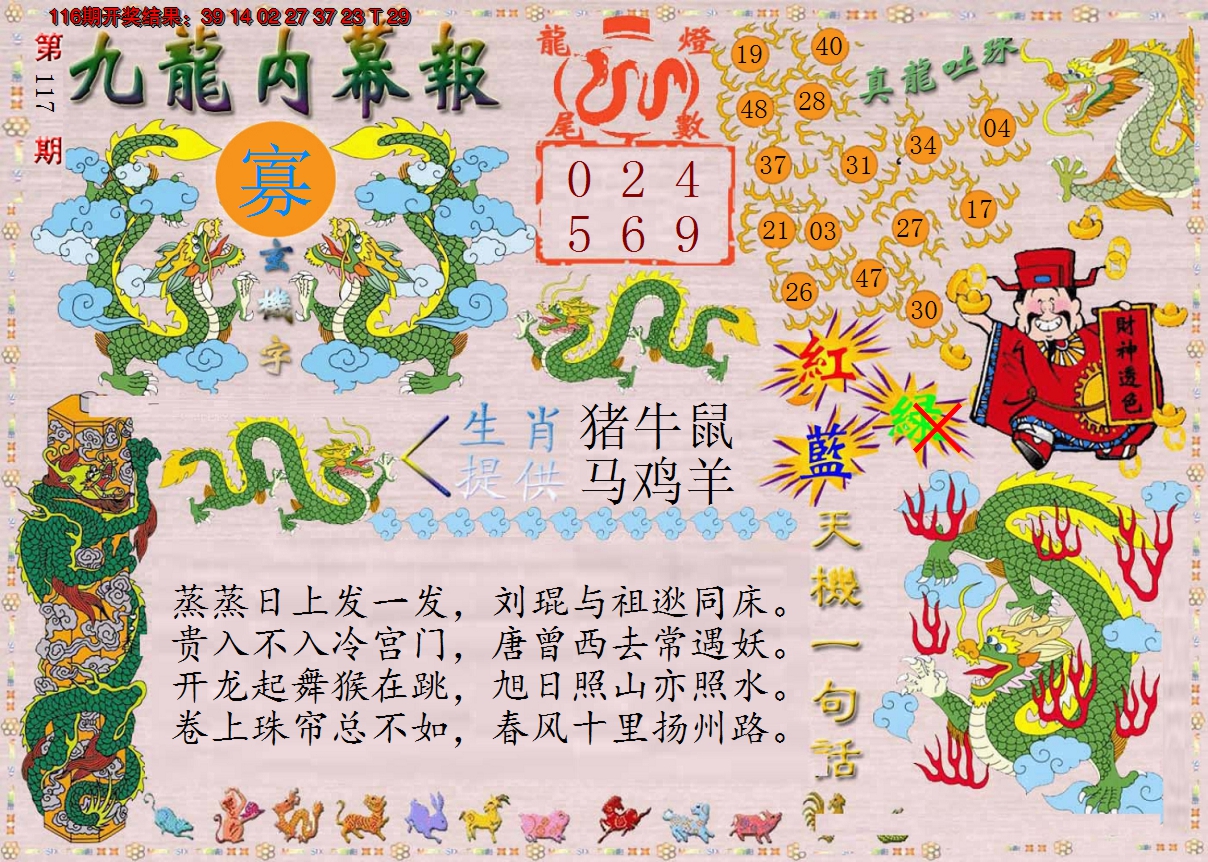 116期开奖结果：39 14 02 27 37 23 T 29
第117期
九龍内幕報
龍燈尾數
0 2 4
5 6 9
寡
玄機字
真龍吐珠
19 40
48 28
37 31 34 04
21 03 27 17
26 47 30
紅
綠
藍
財神透色
生肖提供
猪牛鼠
马鸡羊
蒸蒸日上发一发，刘琨与祖逖同床。
贵入不入冷宫门，唐曾西去常遇妖。
开龙起舞猴在跳，旭日照山亦照水。
卷上珠帘总不如，春风十里扬州路。
天機一句话